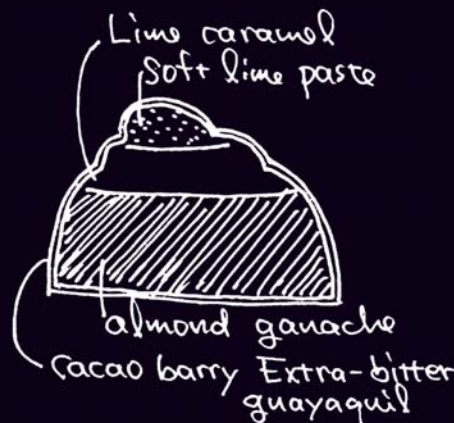 Lime caramel
Soft lime paste
almond ganache
cacao barry Extra-bitter
guayaquil